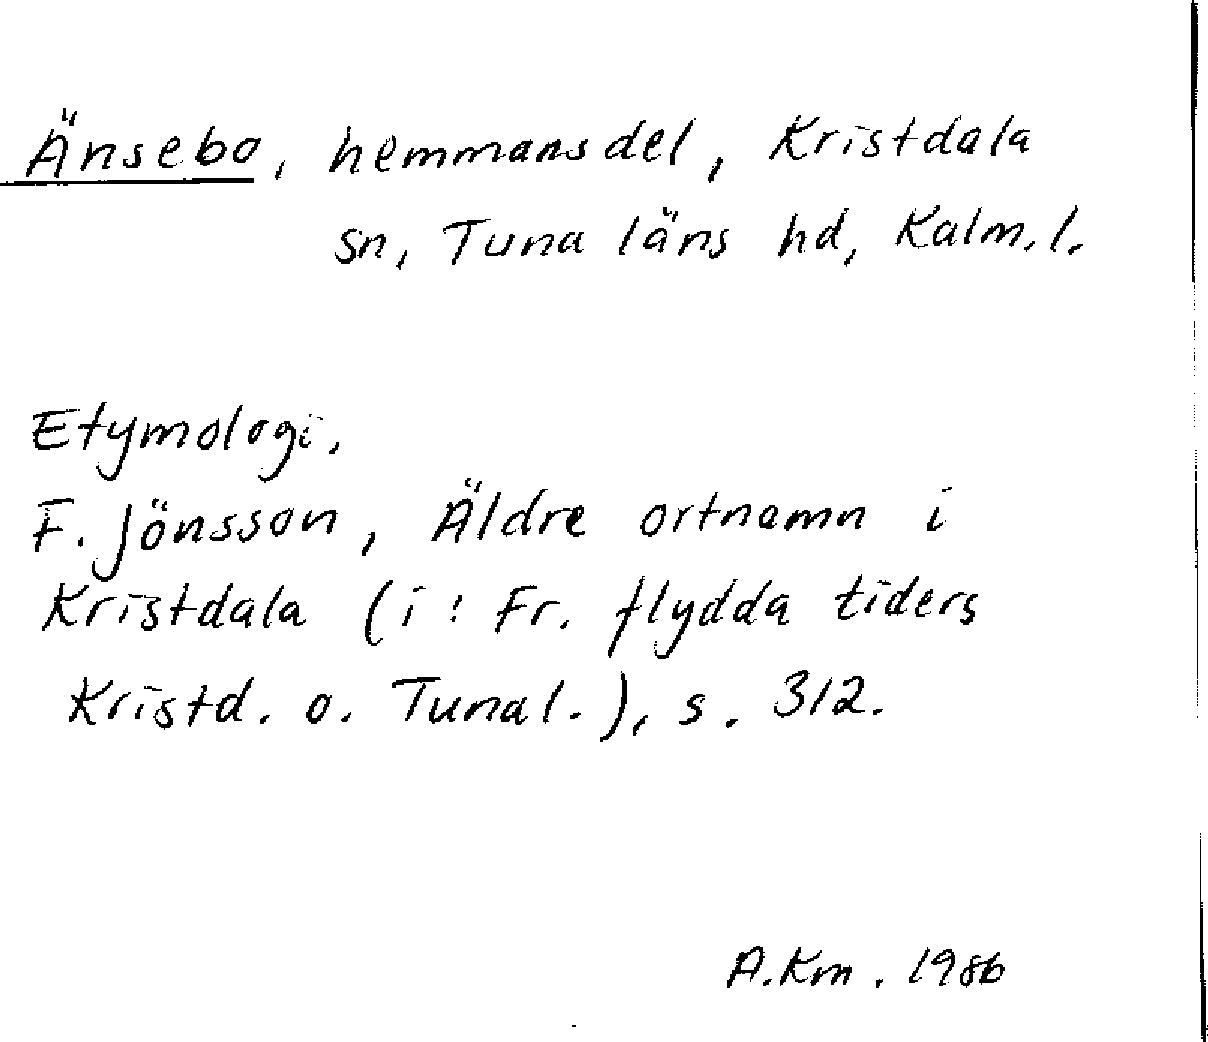 Änsebo, hemmansdel, Kristdala
sn, Tuna läns hd, Kalm. l.
Etymologi.
F. Jönsson, Äldre ortnamn i
Kristdala (i: Fr. flydda tiders
Kristd. o. Tunal.), s. 312.
A.Km. 1986